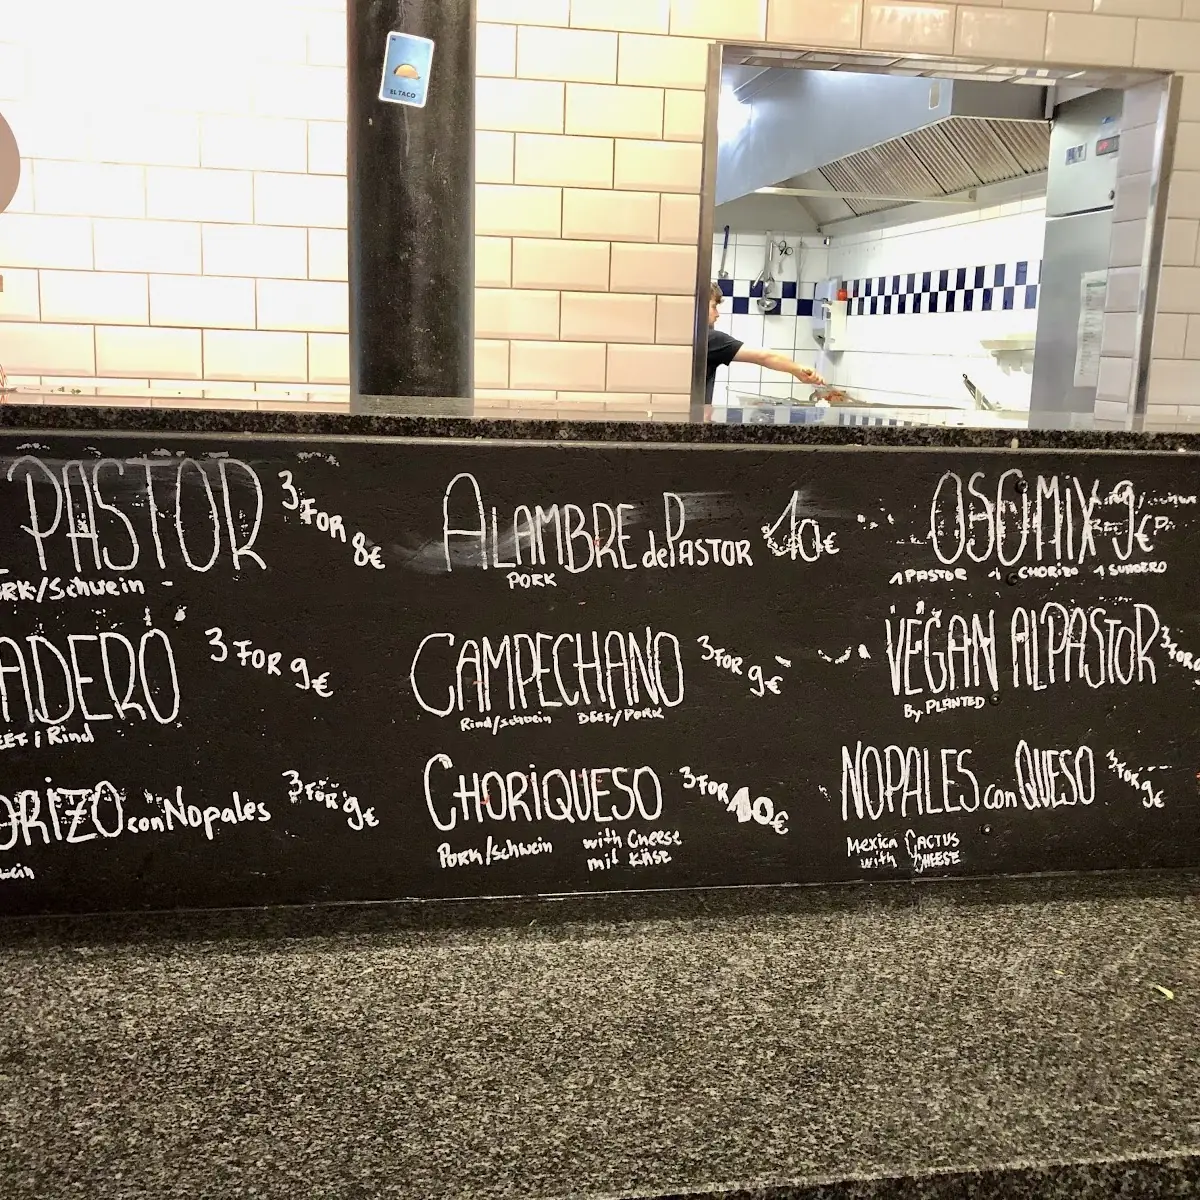 EL TACO
PASTOR 3 FOR 8€
/Schwein
ALAMBRE de PASTOR 10€
PORK
OSOMIX 9€
1 PASTOR 1 CHORIZO 1 SUADERO
ADERO 3 FOR 9€
/Rind
CAMPECHANO 3 FOR 9€
Rind/schwein BEEF/PORK
VEGAN AL PASTOR 3 FOR
By. PLANTED
ORIZO con Nopales 3 FOR 9€
CHORIQUESO 3 FOR 10€
PORK/schwein with CHEESE
mit KÄSE
NOPALES con QUESO 3 FOR 9€
Mexica CACTUS
with CHEESE